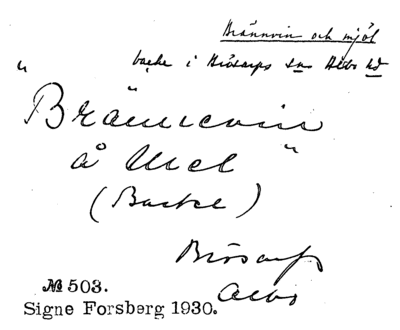 Brännvin och mjöl
backe i Brösarps sn Albo hd
"Brännevin
å Mel"
(Backe)
Brösarps
Albo
№ 503.
Signe Forsberg 1930.